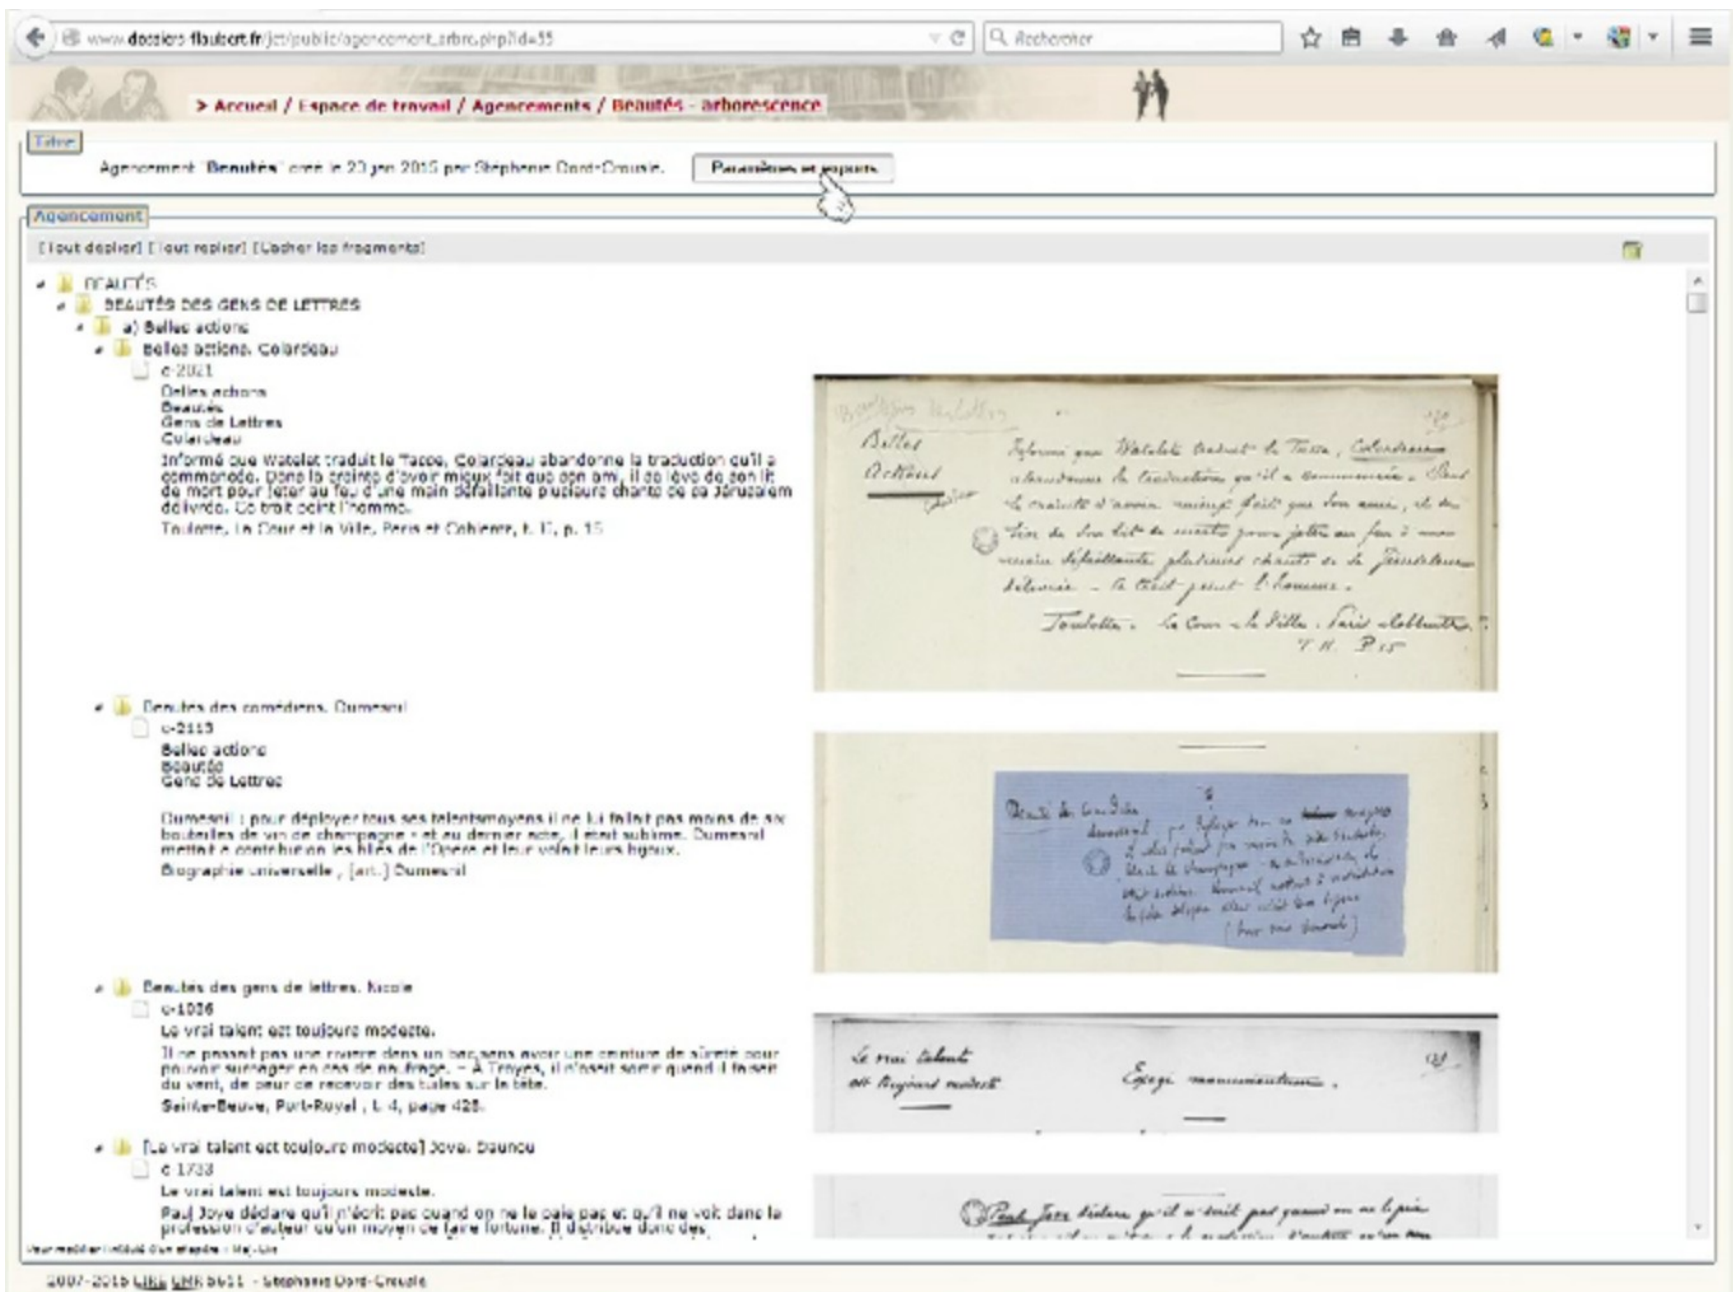 www.dossiers-flaubert.fr/jct/public/agencement_arbre.php?id=55
Rechercher
> Accueil / Espace de travail / Agencements / Beautés - arborescence
Titre
Agencement "Beautés" créé le 20 jan 2015 par Stéphanie Dord-Crouslé.
Paramètres et exports
Agencement
[Tout déplier] [Tout replier] [Cacher les fragments]
BEAUTÉS
BEAUTÉS DES GENS DE LETTRES
a) Belles actions
Belles actions. Colardeau
c-2021
Belles actions
Beautés
Gens de Lettres
Colardeau
Informé que Watelet traduit le Tasse, Colardeau abandonne la traduction qu'il a
commencée. Dans la crainte d'avoir mieux fait que son ami, il se lève de son lit
de mort pour jeter au feu d'une main défaillante plusieurs chants de sa Jérusalem
délivrée. Ce trait peint l'homme.
Toulotte, La Cour et la Ville, Paris et Coblentz, t. II, p. 15
Belles
Actions
Informé que Watelet traduit le Tasse, Colardeau
abandonne la traduction qu'il a commencée. Dans
la crainte d'avoir mieux fait que son ami, il se
lève de son lit de mort pour jeter au feu d'une
main défaillante plusieurs chants de sa Jérusalem
délivrée - ce trait peint l'homme.
Toulotte. La Cour et la Ville. Paris et Coblentz.
T. II. P 15
Beautés des comédiens. Dumesnil
c-2113
Belles actions
Beautés
Gens de Lettres
Dumesnil : pour déployer tous ses talentsmoyens il ne lui fallait pas moins de six
bouteilles de vin de champagne - et au dernier acte, il était sublime. Dumesnil
mettait à contribution les filles de l'Opéra et leur volait leurs bijoux.
Biographie universelle , [art.] Dumesnil
Beautés des gens de lettres. Nicole
c-1036
Le vrai talent est toujours modeste.
Il ne passait pas une rivière dans un bac sans avoir une ceinture de sûreté pour
pouvoir surnager en cas de naufrage. – À Troyes, il n'osait sortir quand il faisait
du vent, de peur de recevoir des tuiles sur la tête.
Sainte-Beuve, Port-Royal , t. 4, page 428.
Le vrai talent
est toujours modeste
Exegi monumentum.
[Le vrai talent est toujours modeste] Jove. Daunou
c-1733
Le vrai talent est toujours modeste.
Paul Jove déclare qu'il n'écrit pas quand on ne le paie pas et qu'il ne voit dans la
profession d'auteur qu'un moyen de faire fortune. Il distribue donc des
Paul Jove déclare qu'il n'écrit pas quand on ne le paie
Pour modifier l'intitulé d'un chapitre : Maj-Clic
2007-2015 LIRE UMR 5611 - Stéphanie Dord-Crouslé